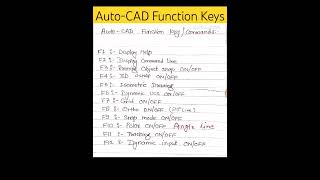 Auto-CAD Function Keys
Auto-CAD Function Key/Commands
F1 :- Display Help
F2 :- Display Command Line
F3 :- Running Object snap ON/OFF
F4 :- 3D osnap ON/OFF
F5 :- Isometric Drawing
F6 :- Dynamic UCS ON/OFF
F7 :- Grid ON/OFF
F8 :- Ortho ON/OFF
F9 :- Snap mode ON/OFF
F10 :- Polar ON/OFF Angle Line
F11 :- Tracking ON/OFF
F12 :- Dynamic input ON/OFF